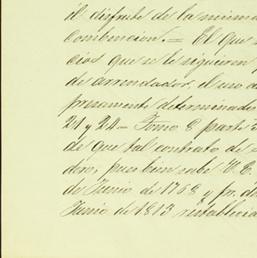 il disfrute de la misma
combencion.= El que
cios que se le siguieren
de arrendador, el uso de
presamente determinado
21 y 24 - Tomo 8 parte 5
de que tal contrato de
dor, pues bien sabe V. E.
de Junio de 1768 y pr. de
Junio de 1813 restablecid